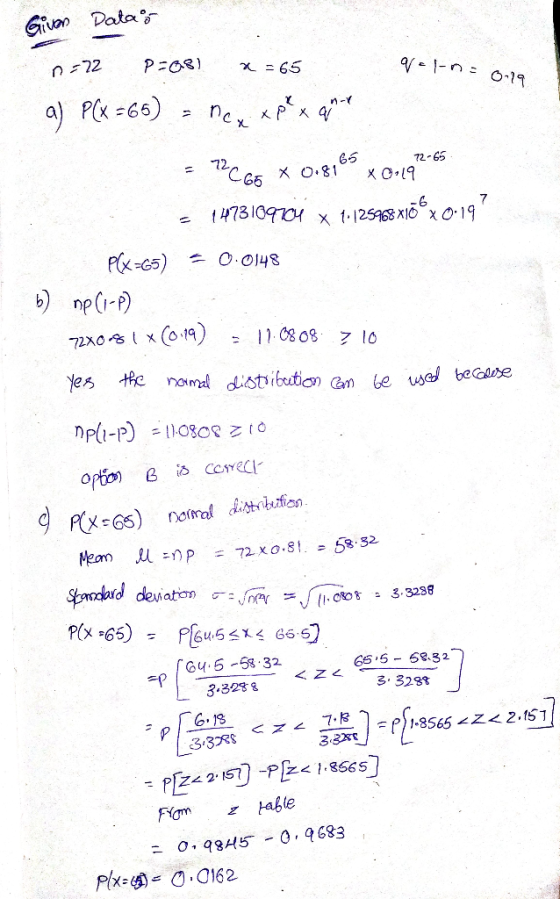 Given Data:-
n=72 P=0.81 x=65 q=1-n= 0.19
a) P(x=65) = nCx × p^x × q^n-x
= 72C65 × 0.81^65 × 0.19^72-65
= 1473109704 × 1.125968×10^-6 × 0.19^7
P(x=65) = 0.0148
b) np(1-P)
72×0.81×(0.19) = 11.0808 ≥ 10
Yes the normal distribution can be used because
np(1-P) = 11.0808 ≥ 10
option B is correct
c) P(X=65) normal distribution.
Mean μ=np = 72×0.81. = 58.32
Standard deviation σ=√npq = √11.0808 = 3.3288
P(x=65) = P[64.5≤x≤65.5]
=P[64.5-58.32/3.3288 <Z< 65.5-58.32/3.3288]
=P[6.18/3.3288 <Z< 7.18/3.3288] =P[1.8565<Z<2.157]
= P[Z<2.157] -P[Z<1.8565]
From z table
= 0.9845 -0.9683
P(x=65)= 0.0162